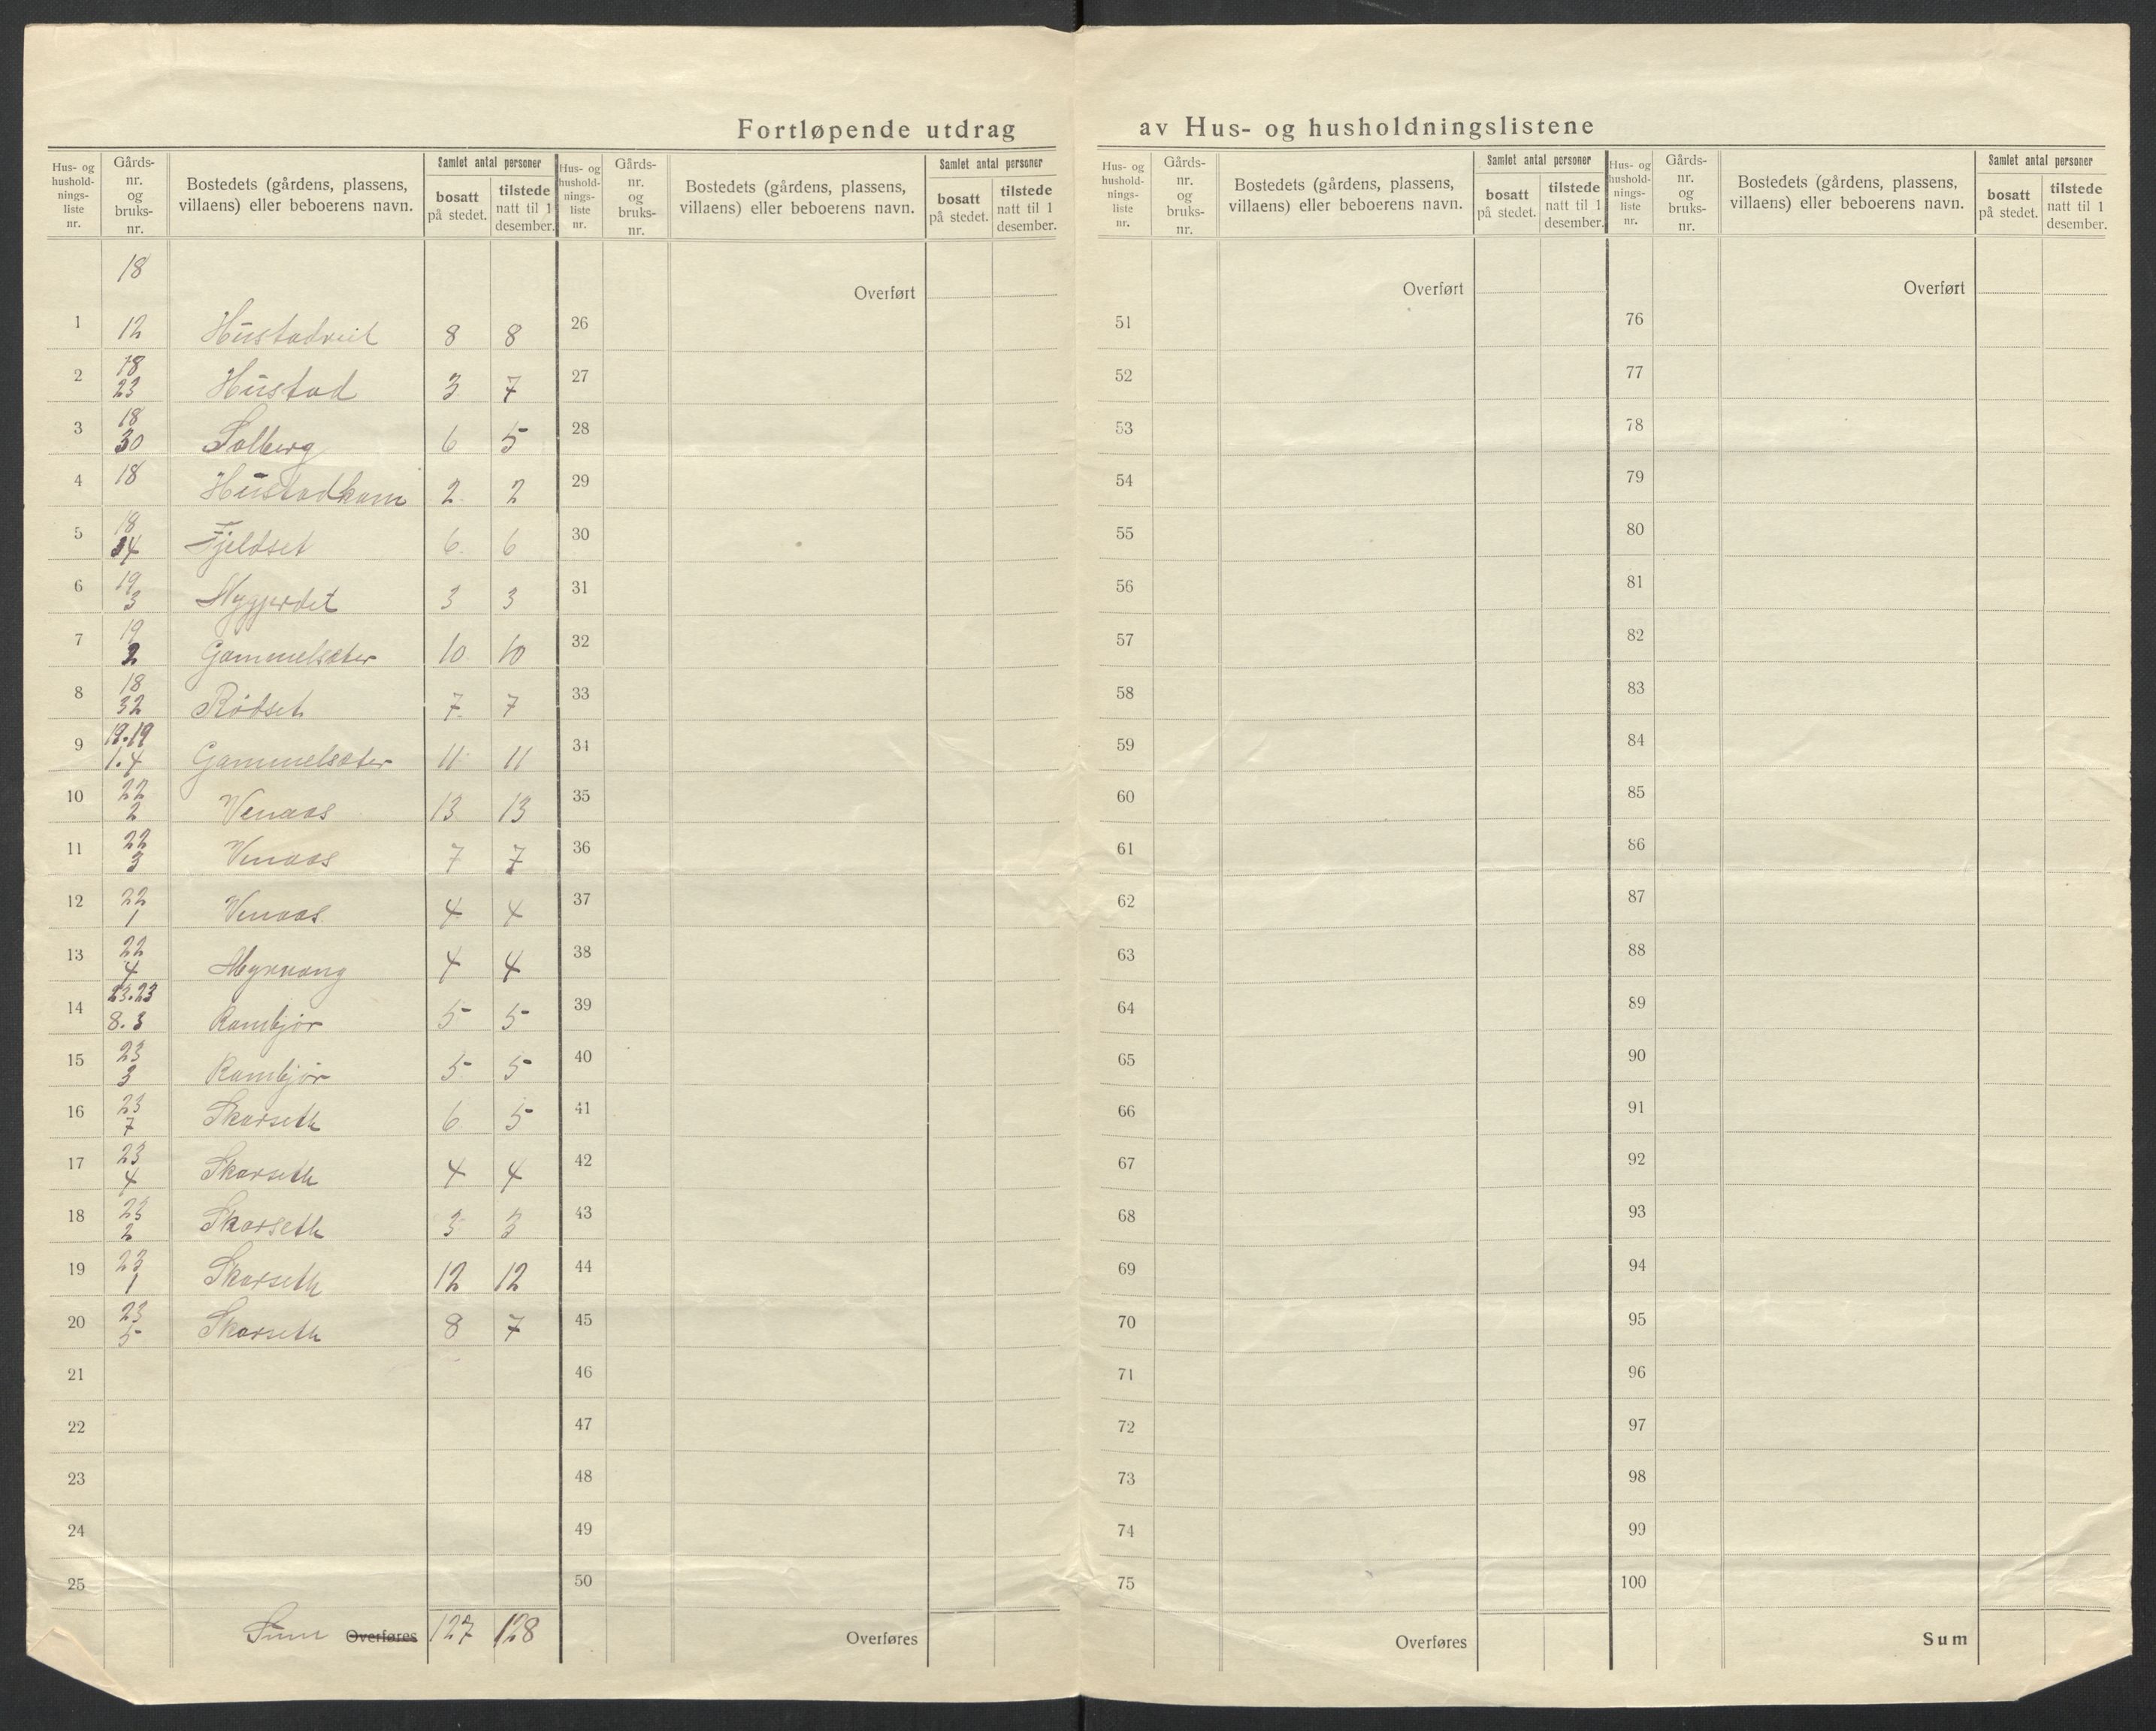 Fortløpende utdrag av Hus- og husholdningslistene
Hus- og husholdnings-liste nr. Gårds-nr. og bruks-nr. Bostedets (gårdens, plassens, villaens) eller beboerens navn. Samlet antal personer bosatt på stedet. tilstede natt til 1 desember.
Hus- og husholdnings-liste nr. Gårds-nr. og bruks-nr. Bostedets (gårdens, plassens, villaens) eller beboerens navn. Samlet antal personer bosatt på stedet. tilstede natt til 1 desember.
Hus- og husholdnings-liste nr. Gårds-nr. og bruks-nr. Bostedets (gårdens, plassens, villaens) eller beboerens navn. Samlet antal personer bosatt på stedet. tilstede natt til 1 desember.
Hus- og husholdnings-liste nr. Gårds-nr. og bruks-nr. Bostedets (gårdens, plassens, villaens) eller beboerens navn. Samlet antal personer bosatt på stedet. tilstede natt til 1 desember.
18
1 12 Hustadveit 8 8
2 18 23 Hustad 3 7
3 18 30 Solberg 6 5
4 18 Hustadham 2 2
5 18 Fjeldset 6 6
6 19 3 Nygjerdet 3 3
7 19 2 Gammelsæter 10 10
8 18 32 Rødset 7 7
9 19.19 1.4 Gammelsæter 11 11
10 22 2 Venaas 13 13
11 22 3 Venaas 7 7
12 22 1 Venaas 4 4
13 22 4 Myrvang 4 4
14 23.23 8.3 Rambjør 5 5
15 23 3 Rambjør 5 5
16 23 7 Skarseth 6 5
17 23 4 Skarseth 4 4
18 23 2 Skarseth 3 3
19 23 1 Skarseth 12 12
20 23 5 Skarseth 8 7
21
22
23
24
25
Sum Overføres 127 128
Overført
26
27
28
29
30
31
32
33
34
35
36
37
38
39
40
41
42
43
44
45
46
47
48
49
50
Overføres
Overført
51
52
53
54
55
56
57
58
59
60
61
62
63
64
65
66
67
68
69
70
71
72
73
74
75
Overføres
Overført
76
77
78
79
80
81
82
83
84
85
86
87
88
89
90
91
92
93
94
95
96
97
98
99
100
Sum